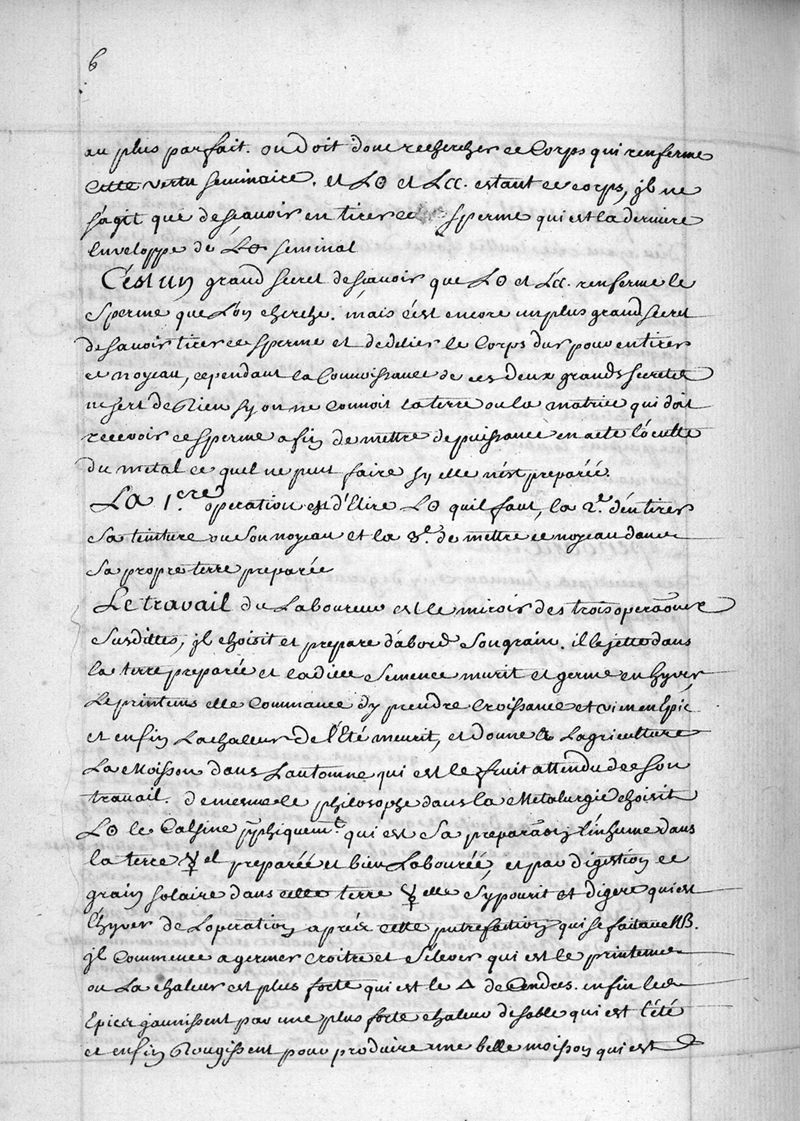 6
au plus parfait. on doit donc rechercher ce Corps qui renferme
cette vertu seminaire. et L☉ et La☾. estant ce corps, jl ne
s'agit que de scavoir en tirer ce sperme qui est la derniere
Enveloppe de L☉ seminal
C'est un grand secret de scavoir que L☉ et La☾. renferme le
Sperme que l'on cherche. mais c'est encore un plus grand secret
de savoir tirer ce sperme et de delier le Corps dur pour en tirer
ce noyeau, cependant la Connoissance de ces deux grands secrets
ne sert de Rien sy on ne Connoit la terre ou la matrice qui doit
recevoir ce sperme afin de mettre de puissance en acte l'oculte
du metal ce quel ne peut faire sy elle n'est preparée.
La 1.ere operation est d'Elire L☉ quil faut, la 2.e d'en tirer
sa teinture ou son noyeau et la 3.e de mettre ce noyeau dans
sa propre terre preparée
Le travail du Laboureur est le miroir des trois operaõns
Susdittes, jl choisit et prepare d'abord son grain. il le jette dans
la terre preparée et ladite Semence murit et germe en hyver
Le printems elle Commance d'y prendre Croissance et vien en Epic
et enfin La chaleur de l'Eté meurit, et donne a Lagriculture
La Moisson dans Lautomne qui est le fruit attendu de son
travail. de mesme le philosophe dans la Metalurgie choisit
L☉ le Calsine pphiquem.t qui est sa preparaõn l'inhume dans
la terre ☿el preparée et bien Labourée, et par digestion ce
grain solaire dans cette terre ☿elle s'y pourit et digere qui est
l'hyver de Loperation apréz cette putrefaction qui se fait au MB.
jl Commence a germer croitre et s'elever qui est le printems
ou La chaleur est plus forte qui est le △ de Cendres. enfin les
Epics jaunissent par une plus forte chaleur de sable qui est l'été
et enfin Rougissent pour produire une belle moisson qui est